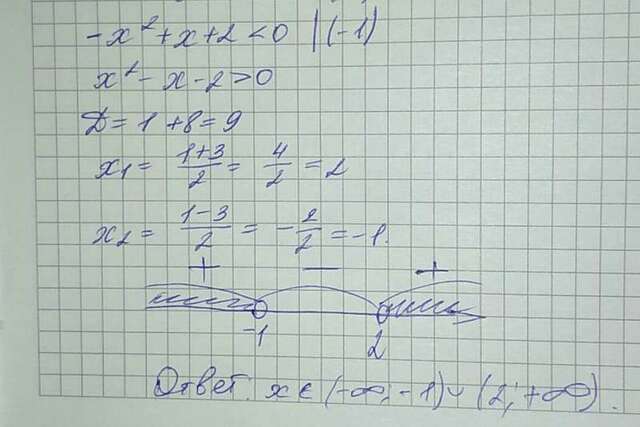 -x² + x + 2 < 0 | (-1)
x² - x - 2 > 0
D = 1 + 8 = 9
x₁ = (1+3)/2 = 4/2 = 2
x₂ = (1-3)/2 = -2/2 = -1.
+ − +
-1 2
Ответ: x ∈ (-∞; -1) ∪ (2; +∞).